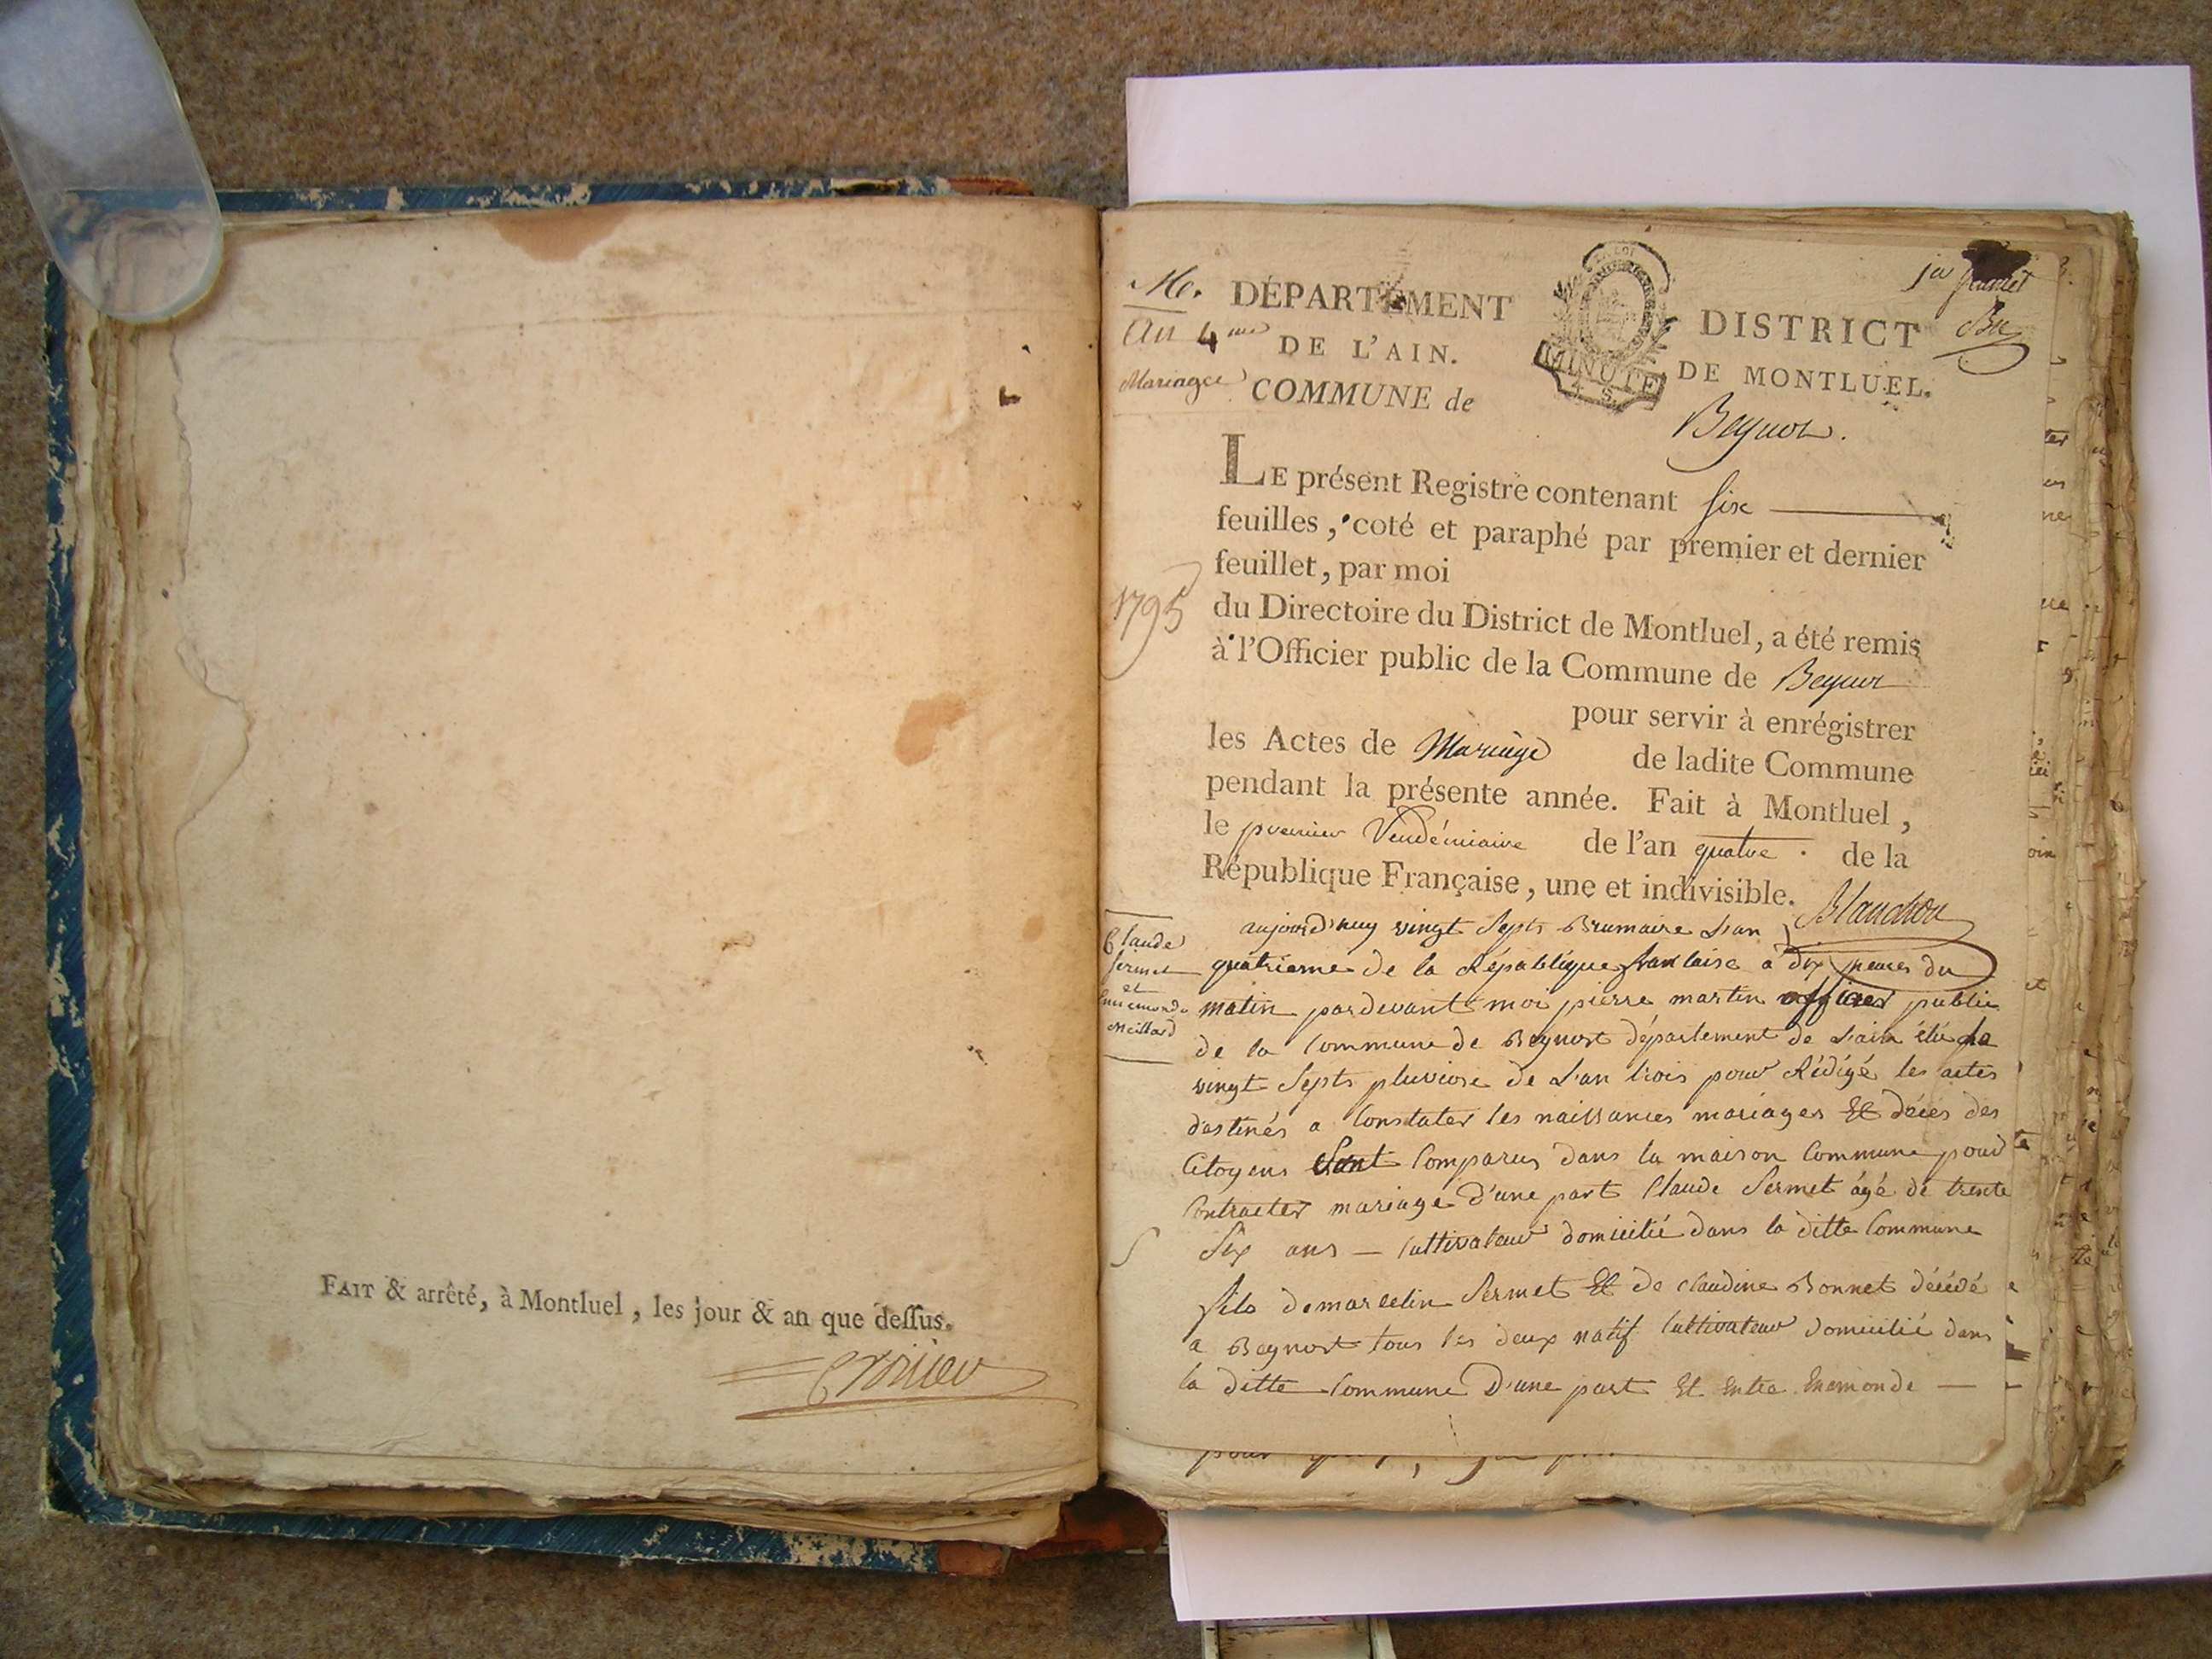 FAIT & arrêté, à Montluel, les jour & an que deſſus.
M.
An 4me
Mariages
DÉPARTEMENT
DE L'AIN.
COMMUNE de
LA LOI
MINUTE
4 S.
1er feuillet
DISTRICT
DE MONTLUEL.
Beynost.
LE présent Registre contenant six
feuilles, coté et paraphé par premier et dernier
feuillet, par moi
du Directoire du District de Montluel, a été remis
à l'Officier public de la Commune de Beynost
pour servir à enrégistrer
les Actes de Mariage de ladite Commune
pendant la présente année. Fait à Montluel,
le premier Vendémiaire de l'an quatre. de la
République Française, une et indivisible.
Blanchon
1795
Claude
Sermet
et
Meillard
aujourd'huy vingt Septs Brumaire L'an
quatrieme de la République franlaise a dix heures du
matin pardevant moi pierre martin officier public
de la Commune de Beynost département de L'ain élu le
vingt Septs pluviose de L'an trois pour Rédigé les actes
destinés a Constater les naissances mariages Et décès des
Citoyens Sont Comparus dans la maison Commune pour
Contracter mariage d'une part Claude Sermet âgé de trente
Six ans — Cultivateur domicilié dans la ditte Commune
fils de marcelin Sermet Et de Claudine Bonnet décédé
a Beynost tous les deux natif Cultivateur domicilié dans
la ditte Commune D'une part Et Entre Enemonde —
pour